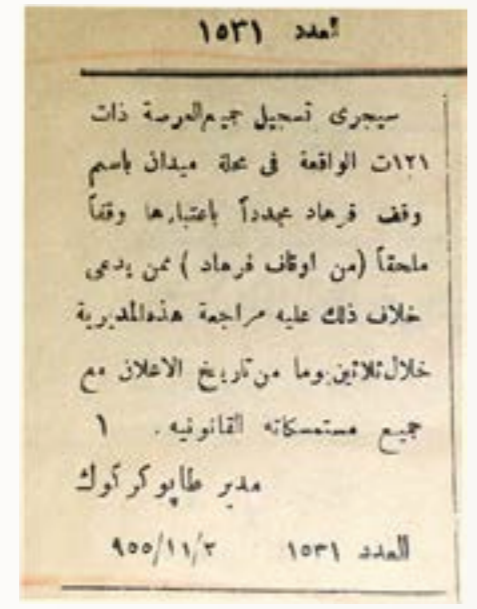 العدد ١٥٣١
سيجرى تسجيل جميع العرصة ذات
١٢١ت الواقعة فى محلة ميدان باسم
وقف فرهاد مجدداً باعتبارها وقفاً
ملحقاً (من اوقاف فرهاد) فمن يدعى
خلاف ذلك عليه مراجعة هذه المديرية
خلال ثلاثين يوما من تاريخ الاعلان مع
جميع مستمسكاته القانونيه. ١
مدير طاپو كركوك
العدد ١٥٣١ ٩٥٥/١١/٢